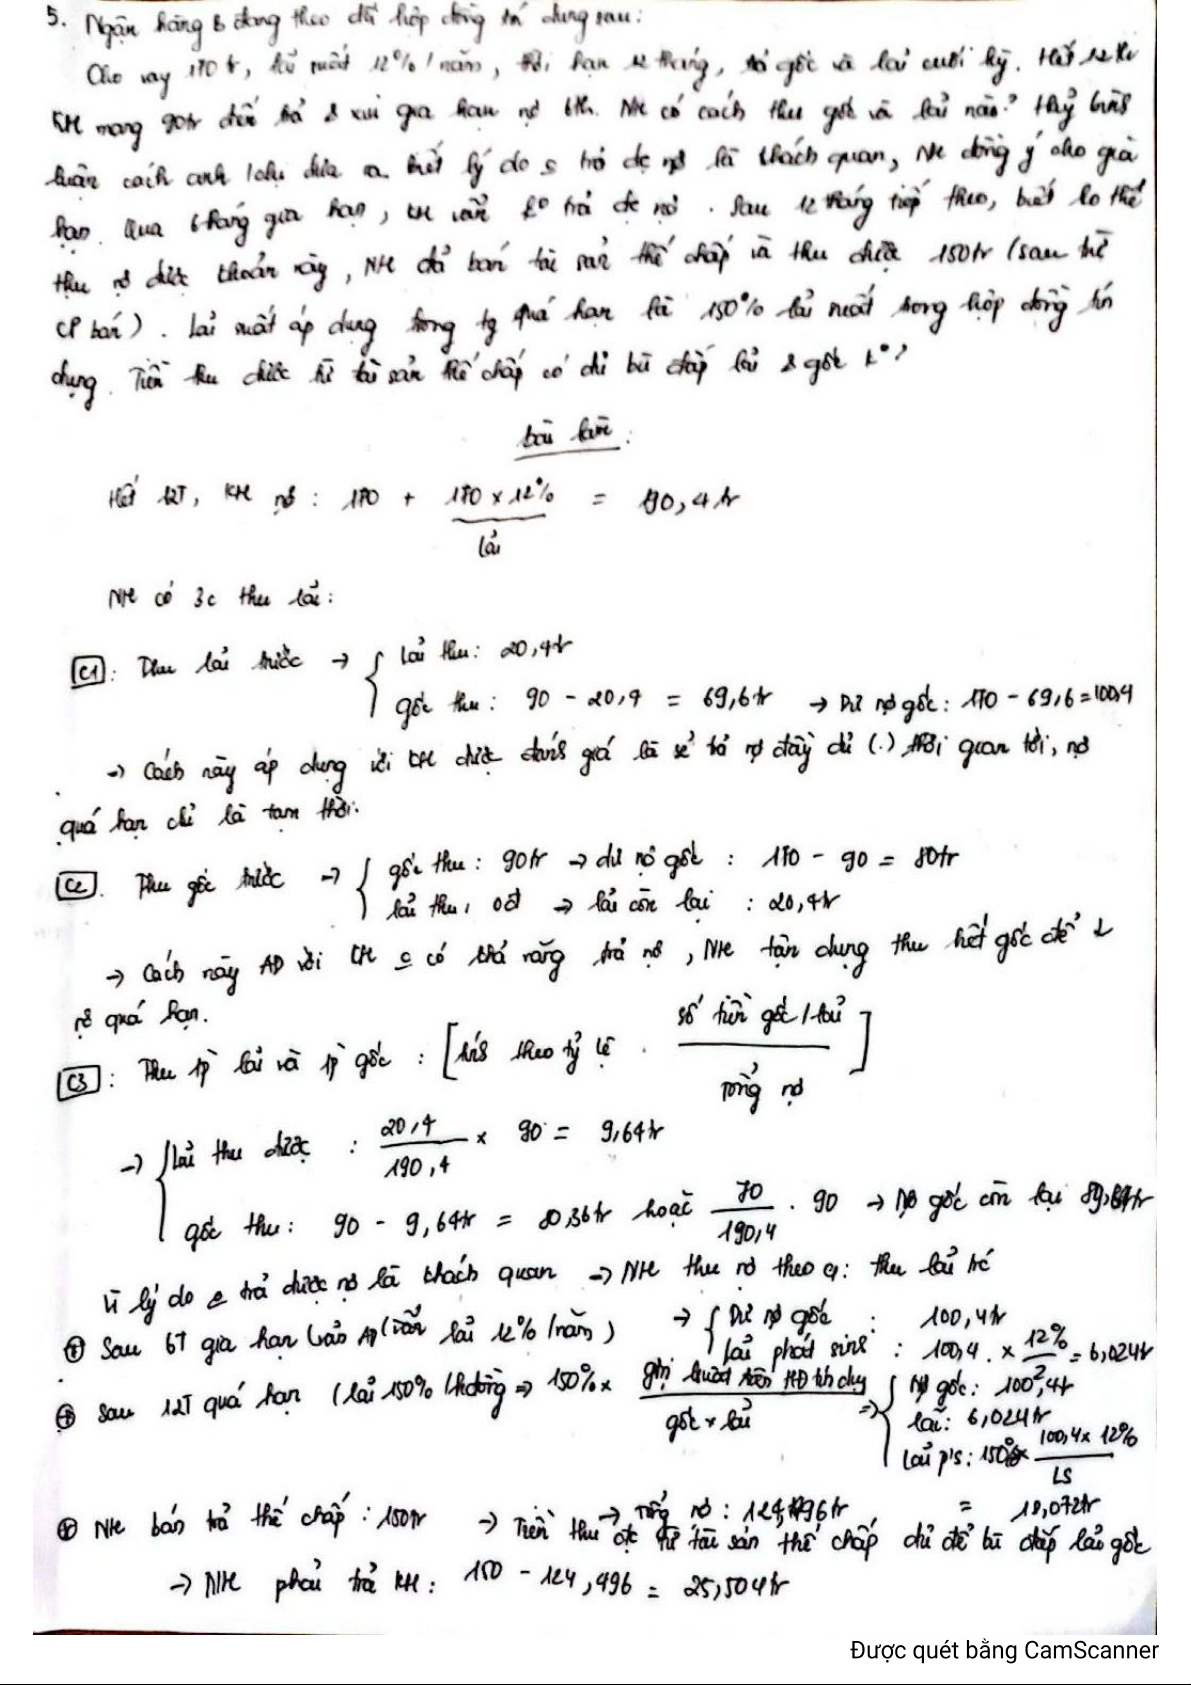 5. Ngân hàng B đang theo dõi hợp đồng tín dụng sau:
Cho vay 170tr, lãi suất 12%/năm, thời hạn 12 tháng, trả gốc và lãi cuối kỳ. Hết 12th
KH mang 90tr đến trả & xin gia hạn nợ 6th. NH có cách thu gốc và lãi nào? Hãy bình
luận cách anh/chị đưa ra biết lý do c trả đc nợ là khách quan, NH đồng ý cho gia
hạn. Qua 6 tháng gia hạn, KH vẫn k° trả đc nợ. Sau 12 tháng tiếp theo, biết ko thể
thu nợ được khoản này, NH đã bán tài sản thế chấp và thu được 150tr (sau trừ
CP bán). Lãi suất áp dụng trong tg quá hạn là 150% lãi suất trong hợp đồng tín
dụng. Tiền thu được từ tài sản thế chấp có đủ bù đắp lãi & gốc k°?
bài làm:
Hết 12T, KH nợ: 170 + 170 x 12% = 190,4tr
lãi
NH có 3c thu lãi:
C1: Thu lãi trước → { lãi thu: 20,4tr
gốc thu: 90 - 20,4 = 69,6tr → Dư nợ gốc: 170 - 69,6 = 100,4
→ Cách này áp dụng với KH được đánh giá là sẽ trả nợ đầy đủ (.) thời gian tới, nợ
quá hạn chỉ là tạm thời.
C2. Thu gốc trước → { gốc thu: 90tr → dư nợ gốc: 170 - 90 = 80tr
lãi thu: 0đ → lãi còn lại: 20,4tr
→ Cách này AD với KH c có khả năng trả nợ, NH tận dụng thu hết gốc để ↓
nợ quá hạn.
C3: Thu 1p lãi và 1p gốc: [tính theo tỷ lệ. số tiền gốc/lãi / Tổng nợ]
→ { Lãi thu được: 20,4 / 190,4 x 90 = 9,64tr
gốc thu: 90 - 9,64tr = 80,36tr hoặc 70 / 190,4 . 90 → Nợ gốc còn lại 89,64tr
Vì lý do c trả được nợ là khách quan → NH thu nợ theo C1: thu lãi trc
+ Sau 6T gia hạn (vẫn lãi 12%/năm) → { Dư nợ gốc: 100,4tr
Lãi phát sinh: 100,4 . x 12% / 2 = 6,024tr
+ Sau 12T quá hạn (lãi 150% → 150% x gốc x lãi ⇒ { Nợ gốc: 100,4tr
lãi: 6,024tr
Lãi p/s: 150% x 100,4 x 12%
= 18,072tr
→ Tổng nợ: 124,496tr
+ NH bán trả thế chấp: 150tr → Tiền thu đc từ tài sản thế chấp đủ để bù đắp lãi gốc
→ NH phải trả KH: 150 - 124,496 = 25,504tr
Được quét bằng CamScanner